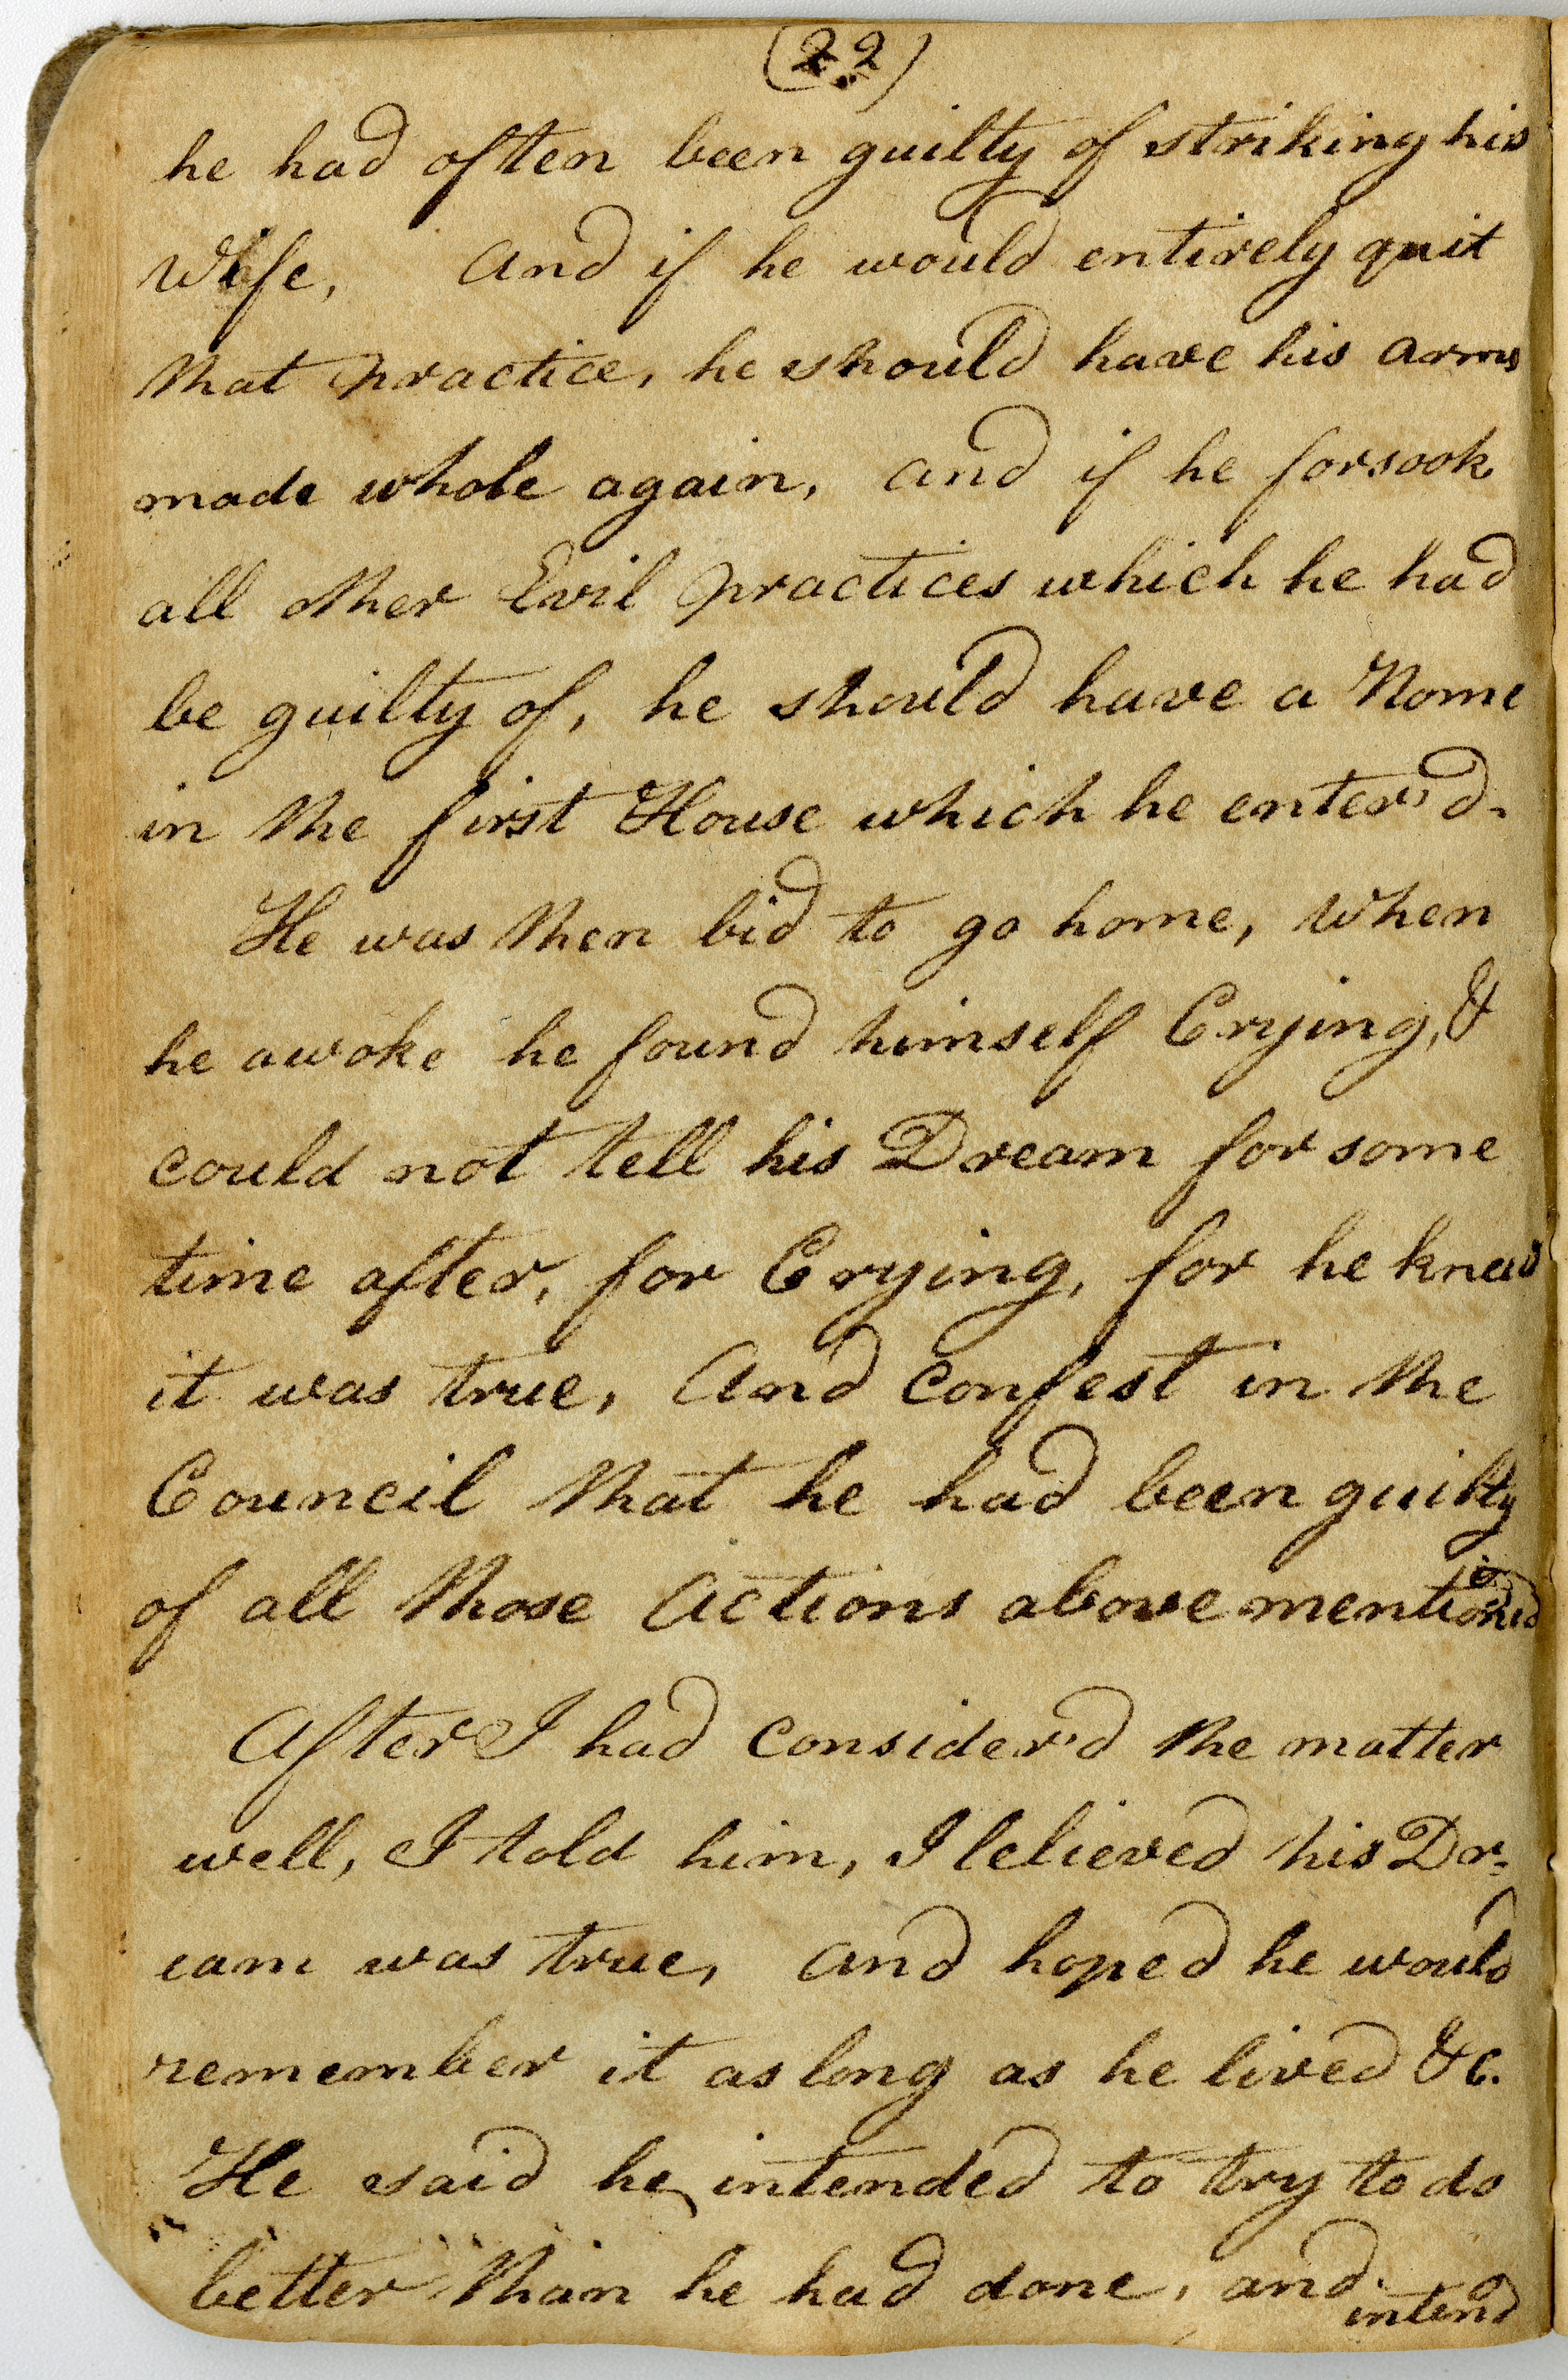 (22)
he had often been guilty of striking his
Wife, And if he would entirely quit
that practice, he should have his arms
made whole again, and if he forsook
all other Evil practices which he had
be guilty of, he should have a Home
in the first House which he enter'd.
He was then bid to go home, When
he awoke he found himself Crying, &
could not tell his Dream for some
time after, for Crying, for he knew
it was true, And confest in the
Council that he had been guilty
of all those Actions above mentioned
After I had consider'd the matter
well, I told him, I believed his Dr-
eam was true, and hoped he would
remember it as long as he lived &c.
He said he intended to try to do
better than he had done, and
intend